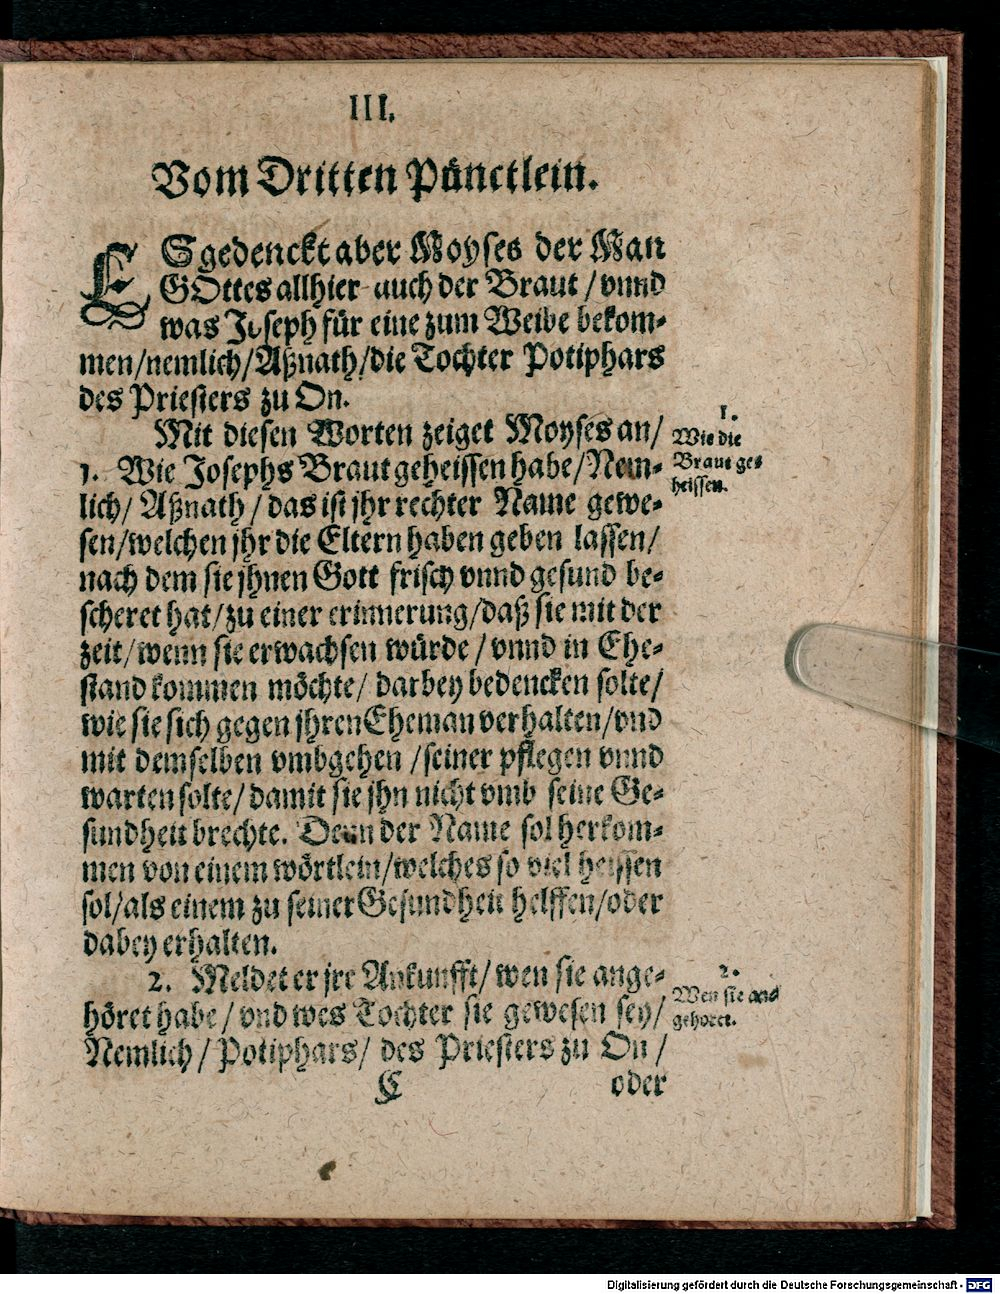 III.
Vom Dritten Pünctlein.
ES gedenckt aber Moyses der Man
GOttes allhier auch der Braut / vnnd
was Joseph für eine zum Weibe bekom-
men/nemlich/Aßnath/die Tochter Potiphars
des Priesters zu On.
Mit diesen Worten zeiget Moyses an/
1. Wie Josephs Braut geheissen habe/Nem-
lich/ Aßnath / das ist jhr rechter Name gewe-
sen/welchen jhr die Eltern haben geben lassen/
nach dem sie jhnen Gott frisch vnnd gesund be-
scheret hat/zu einer erinnerung/daß sie mit der
zeit/wenn sie erwachsen würde / vnnd in Ehe-
stand kommen möchte/ darbey bedencken solte/
wie sie sich gegen jhren Eheman verhalten/vnd
mit demselben vmbgehen /seiner pflegen vnnd
warten solte/damit sie jhn nicht vmb seine Ge-
sundheit brechte. Denn der Name sol herkom-
men von einem wörtlein/welches so viel heissen
sol/als einem zu seiner Gesundheit helffen/oder
dabey erhalten.
2. Meldet er jre Ankunfft/ wen sie ange-
höret habe / vnd wes Tochter sie gewesen sey/
Nemlich / Potiphars/ des Priesters zu On /
C oder
1.
Wie die
Braut ge-
heissen.
2.
Wen sie an-
gehöret.
Digitalisierung gefördert durch die Deutsche Forschungsgemeinschaft - DFG